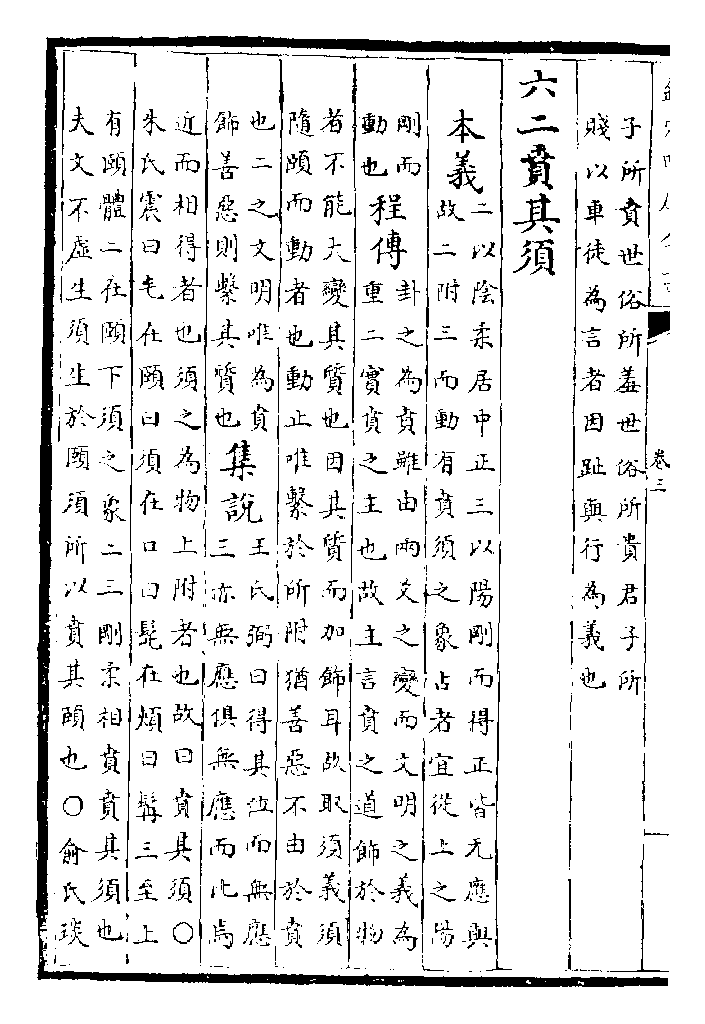 卷三
子所賁世俗所羞世俗所貴君子所
賤以車徒為言者因趾與行為義也
六二賁其須
本義二以陰柔居中正三以陽剛而得正皆无應與
故二附三而動有賁須之象占者宜從上之陽
剛而
動也程傳卦之為賁雖由兩爻之變而文明之義為
重二實賁之主也故主言賁之道飾於物
者不能大變其質也因其質而加飾耳故取須義須
隨頤而動者也動止唯繫於所附猶善惡不由於賁
也二之文明唯為賁
飾善惡則繫其質也集說王氏弼曰得其位而無應
三亦無應俱無應而比焉
近而相得者也須之為物上附者也故曰賁其須〇
朱氏震曰毛在頤曰須在口曰髭在頰曰髯三至上
有頤體二在頤下須之象二三剛柔相賁賁其須也
夫文不虛生須生於頤須所以賁其頤也〇俞氏琰